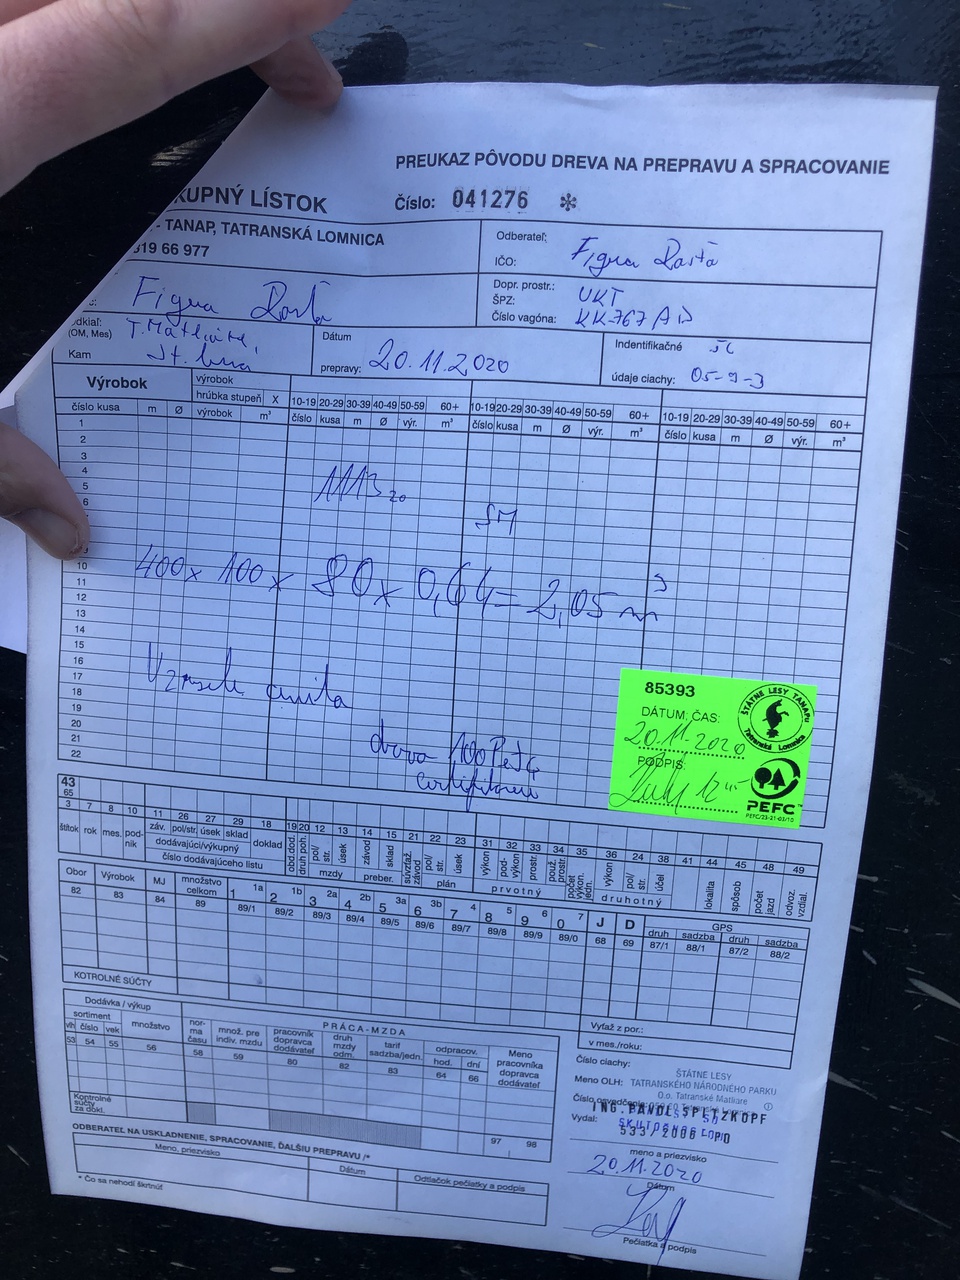 PREUKAZ PÔVODU DREVA NA PREPRAVU A SPRACOVANIE
KUPNÝ LÍSTOK
Číslo: 041276 *
- TANAP, TATRANSKÁ LOMNICA
319 66 977
Odberateľ: Figura
IČO:
Figura
Dopr. prostr.: UKT
ŠPZ:
Číslo vagóna: KK-767 AD
odkiaľ: T. Matliare,
(OM, Mes)
Kam
Dátum
prepravy: 20.11.2020
Indentifikačné
údaje ciachy: 05-9-3
Výrobok
výrobok
hrúbka stupeň X 10-19 20-29 30-39 40-49 50-59 60+ 10-19 20-29 30-39 40-49 50-59 60+ 10-19 20-29 30-39 40-49 50-59 60+
číslo kusa m Ø výrobok m³ číslo kusa m Ø výr. m³ číslo kusa m Ø výr. m³ číslo kusa m Ø výr. m³
1
2
3
4
5
6
9
10
11
12
13
14
15
16
17
18
19
20
21
22
1113 20
SM
400 x 100 x 80 x 0,64 = 2,05 m³
drova 100
85393
DÁTUM, ČAS:
20.11.2020
PODPIS:
ŠTÁTNE LESY TANAPu
Tatranská Lomnica
PEFC
PEFC/23-21-03/10
43
65
3 7 8 10 11 26 27 29 18 19 20 12 13 14 15 21 22 23 31 32 33 34 35 36 24 38 41 44 45 48 49
štítok rok mes. pod-nik záv. pol/str. úsek sklad doklad
dodávajúci/výkupný
číslo dodávajúceho listu
obd.dod. druh poh. pol/str. úsek
mzdy
závod sklad
preber.
súvzťaž. závod pol/str. úsek
plán
výkon pod-výkon prostr.
prvotný
použ. prostr. počet výkon. jedn. výkon pol/str. účel
druhotný
lokalita spôsob počet jazd odvoz. vzdial.
Obor Výrobok MJ množstvo celkom 1 1a 2 1b 3 2a 4 2b 5 3a 6 3b 7 4 8 5 9 6 0 7 J D GPS
druh sadzba druh sadzba
82 83 84 89 89/1 89/2 89/3 89/4 89/5 89/6 89/7 89/8 89/9 89/0 68 69 87/1 88/1 87/2 88/2
KOTROLNÉ SÚČTY
Vyťaž z por.:
v mes./roku:
Dodávka / výkup
sortiment
vlh číslo vek množstvo
53 54 55 56
PRÁCA-MZDA
nor-ma času množ. pre indiv. mzdu pracovník dopravca dodávateľ druh mzdy odm. tarif sadzba/jedn. odpracov. hod. dní Meno pracovníka dopravca dodávateľ
58 59 80 82 83 64 66
Kontrolné súčty za dokl.
97 98
Číslo ciachy:
Meno OLH:
Číslo osvedčenia:
Vydal:
ŠTÁTNE LESY
TATRANSKÉHO NÁRODNÉHO PARKU
O.o. Tatranské Matliare
ING. PAVOL SPITZKOPF
533/2006 LPO
meno a priezvisko
20.11.2020
Dátum
Pečiatka a podpis
ODBERATEĽ NA USKLADNENIE, SPRACOVANIE, ĎALŠIU PREPRAVU /*
Meno, priezvisko
Dátum
Odtlačok pečiatky a podpis
* Čo sa nehodí škrtnúť